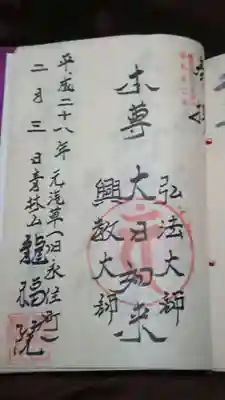 弘法大師
本尊 大日如来
興教大師
元浅草(旧永住町)
平成二十八年
二月三日 青林山 龍福院